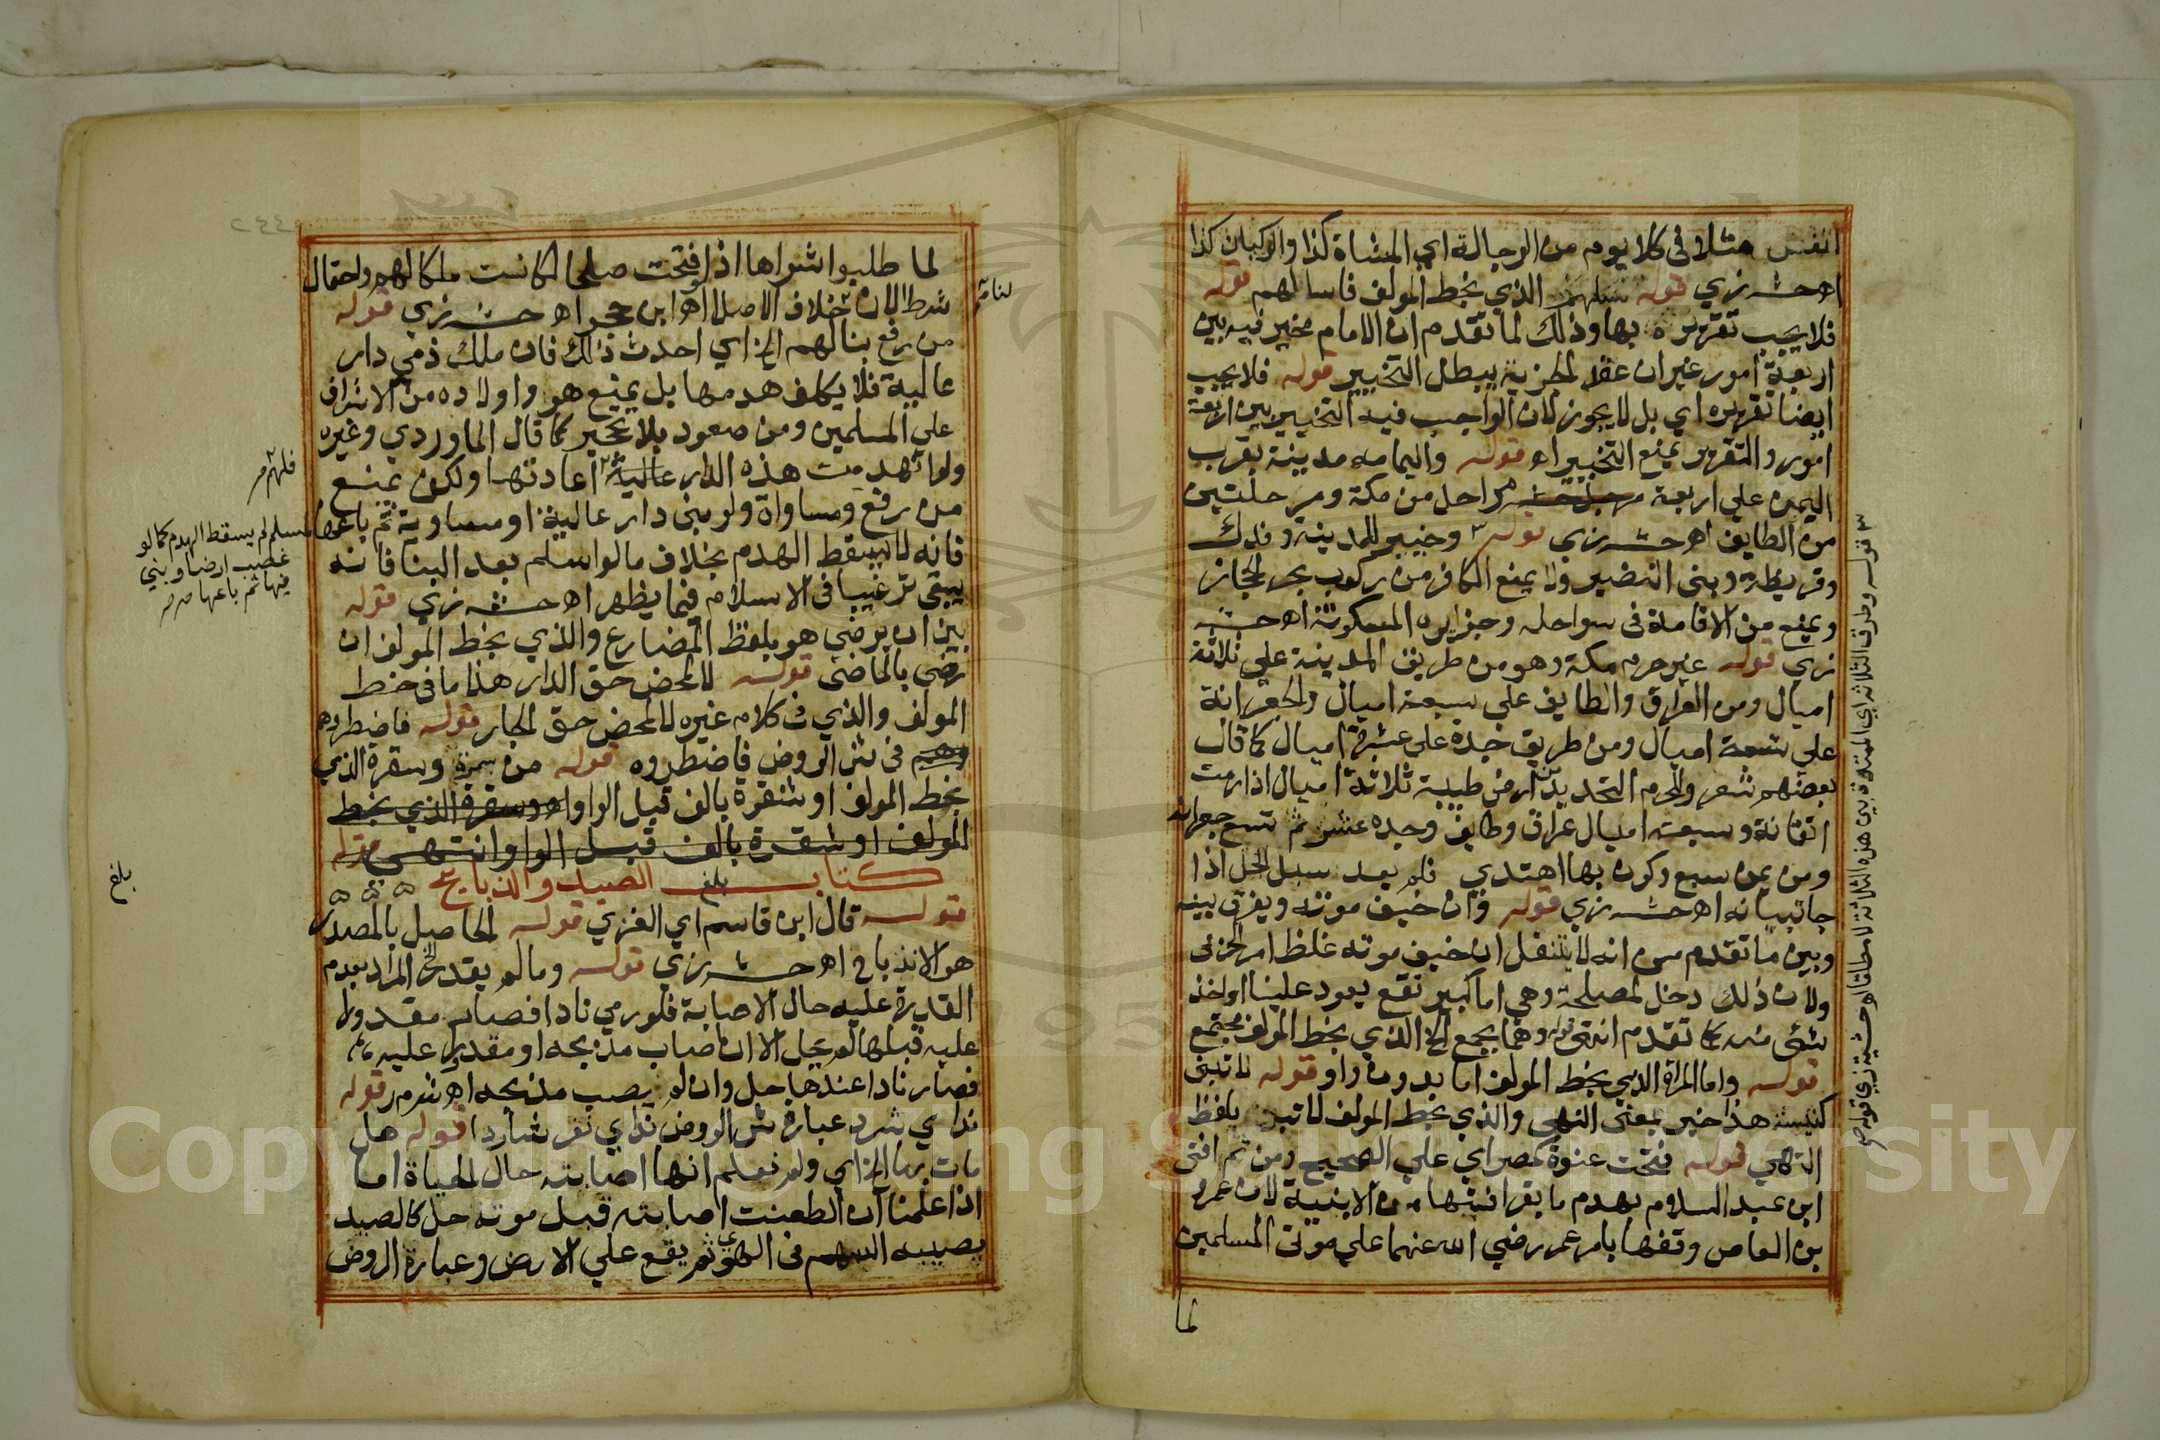 انفس مثلا في كل يوم من الرجالة اي المشاة كذا والركبان كذا
اهحشـ زي قوله الذي بخط المولف فاسالهم قوله
فلا يجب تقريره بها وذلك لما تقدم ان الامام مخير فيه بين
اربعة امور غير ان عقد الجزية يبطل التخيير قوله فلا يجب
ايضا تقريره اي بل لا يجوز لان الواجب فيه التخيير بين اربعة
امور والتقرير يمنع التخيير اه قوله واليمامه مدينة بقرب
اليمن علي اربعة مراحل من مكة ومرحلتين
من الطايف اهحشـ زي قوله وخيبر للمدينة وفدك
وقريظة وبني النضير ولا يمنع الكافر من ركوب بحر الحجاز
ويمنع من الاقامة في سواحله وجزايره المسكونة اهحشـ
زي قوله غير حرم مكة وهو من طريق المدينة علي ثلاثة
اميال ومن العراق والطايف علي سبعة اميال والجعرانة
علي تسعة اميال ومن طريق جدة علي عشرة اميال كما قال
بعضهم شعر وللحرم التحديد من ارض طيبة ثلاثة اميال اذا رمت
اتقانة وسبعة اميال عراق وطايف وجده عشر ثم تسع جعرانه
ومن يمن سبع وكرن بها اهتدي فلم يعد سبل الحل اذا
جا تبيانه اهحشـ زي قوله وان خيف موته ويفرق بينه
وبين ما تقدم من انه لا يتنقل ان خيف موته غلظ امر الجزئى
ولان ذلك دخل لمصلحة وهي اما كبير نفع يعود علينا اواخذ
شئى منه كما تقدم انتهي قوله وهما بجمع الخ الذي بخط المولف مجتمع
قوله واما المراة الذي بخط المولف اما بدون واو قوله لا تبنى
كنيسة هذا خبر بمعنى النهي والذي بخط المولف لا تبن بلفظ
النهي قوله فتحت عنوة كمصر اي علي الصحيح ومن ثم افتى
ابن عبد السلام بهدم ما بقرافتها من الابنية لان عمرو
بن العاص وقفها بامر عمر رضي الله عنهما علي موتى المسلمين
لما
لما طلبوا شراها اذ لو فتحت صلحا لكانت ملكا لهم واحتمال
شرط الان خلاف الاصل اه ابن حجر اهحشـ زي قوله
من رفع بنا لهم الخ اي احدث ذلك فان ملك ذمي دار
عالية فلا يكلف هدمها بل يمنع هو واولاده من الاشراف
علي المسلمين ومن صعود بلا تحجير كما قال الماوردي وغيره
ولو انهدمت هذه الدار عالية اعادتها ولكن يمنع
من رفع ومساواة ولو بني دار عالية او مساوية ثم باعها
فانه لا يسقط الهدم بخلاف ما لو اسلم بعد البنا فانه
يبقي ترغيبا في الاسلام فيما يظهر اهحشـ زي قوله
بين ان يرضي هو بلفظ المضارع والذي بخط المولف ان
رضي بالماضى قوله لا لمحض حق الدار هذا ما في خط
المولف والذي في كلام غيره لا لمحض حق الجار قوله فاضطروهم
في شرح الروض فاضطروه قوله من سمرة وسقرة الذي
بخط المولف او شقرة بالف قبل الواو اه وسقرة الذي بخط
المولف او شقرة بالف قبل الواو انتهى قوله
كتاب الصيد والذبايح
قوله قال ابن قاسم اي الغزي قوله الحاصل بالمصدر
هو الانذباح اهحشـ زي قوله وما لم يقدر الخ المراد بعدم
القدرة عليه حال الاصابة فلو رمي نادا فصار مقدورا
عليه قبلها لم يحل الا ان اصاب مذبحه او مقدورا عليه
فصار نادا عندها حل وان لم يصب مذبحه اه شرم ر قوله
ند اي شرد عبارة شرح الروض ند اي نفر شاردا قوله هل
مات بهما الخ اي ولم نعلم انها اصابته حال الحياة اما
اذا علمنا ان الطعنت اصابته قبل موته حل كالصيد
يصيبه السهم في الهوي ثم يقع علي الارض وعبارة الروض
مسلم لم يسقط الهدم كما لو
غصب ارضا وبني
فيها ثم باعها
بلغ